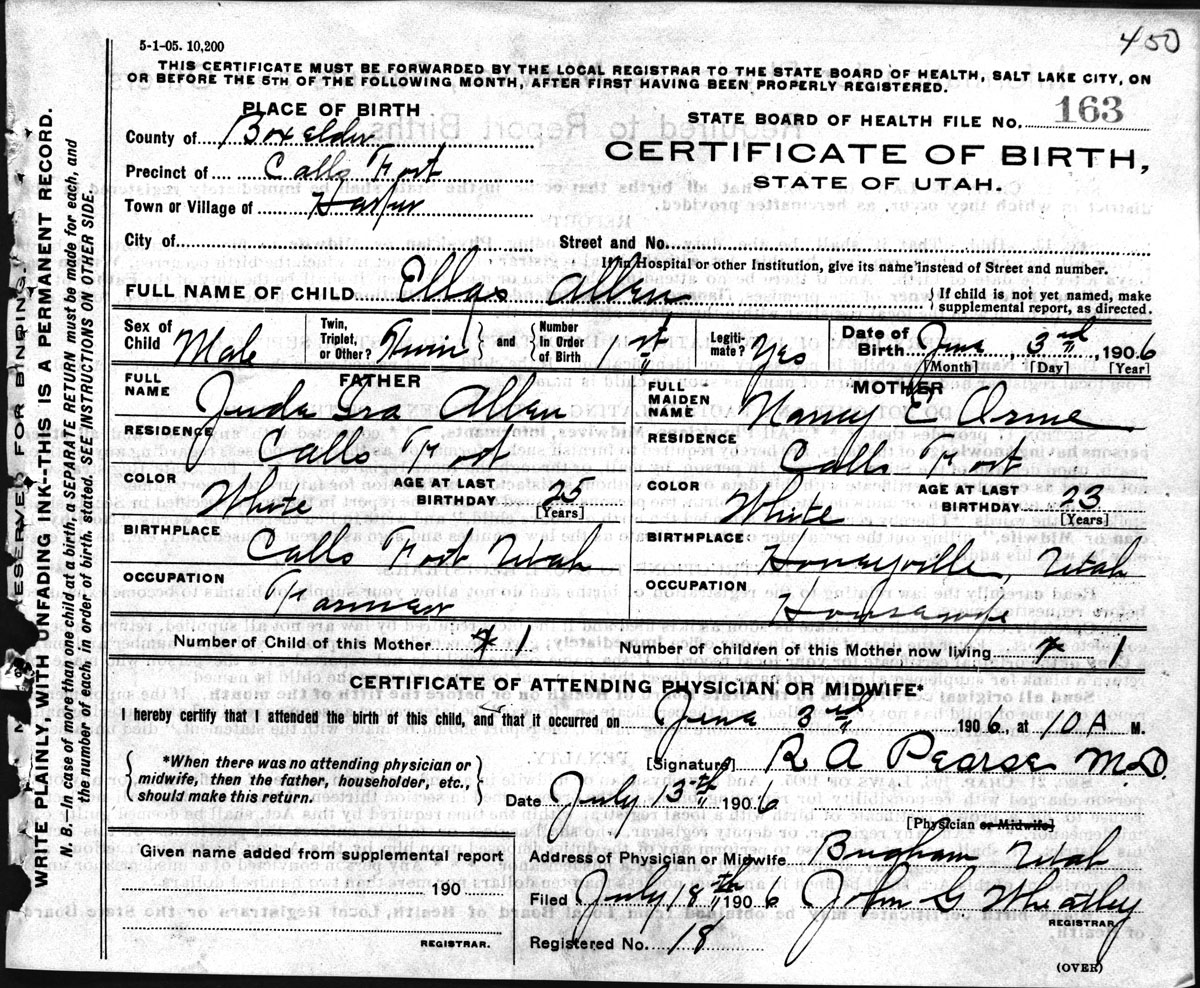 450
5-1-05. 10,200
THIS CERTIFICATE MUST BE FORWARDED BY THE LOCAL REGISTRAR TO THE STATE BOARD OF HEALTH, SALT LAKE CITY, ON
OR BEFORE THE 5TH OF THE FOLLOWING MONTH, AFTER FIRST HAVING BEEN PROPERLY REGISTERED.
PLACE OF BIRTH
STATE BOARD OF HEALTH FILE No. 163
County of Box elder
CERTIFICATE OF BIRTH,
Precinct of Calls Fort
STATE OF UTAH.
Town or Village of Harper
City of Street and No.
If in Hospital or other Institution, give its name instead of Street and number.
FULL NAME OF CHILD Allen
{ If child is not yet named, make supplemental report, as directed.
Sex of Child Male Twin, Triplet, or Other? Twin } and { Number in Order of Birth 1st Legiti- mate? Yes Date of Birth June, 3rd, 1906
[Month] [Day] [Year]
FATHER MOTHER
FULL NAME Juda Ira Allen FULL MAIDEN NAME Nancy E Orme
RESIDENCE Calls Fort RESIDENCE Calls Fort
COLOR White AGE AT LAST BIRTHDAY 25 [Years] COLOR White AGE AT LAST BIRTHDAY 23 [Years]
BIRTHPLACE Calls Fort Utah BIRTHPLACE Honeyville, Utah
OCCUPATION Farmer OCCUPATION Housewife
Number of Child of this Mother 1 Number of children of this Mother now living 1
CERTIFICATE OF ATTENDING PHYSICIAN OR MIDWIFE*
I hereby certify that I attended the birth of this child, and that it occurred on June 3rd 1906, at 10 A M.
{ *When there was no attending physician or midwife, then the father, householder, etc., should make this return. }
[Signature] R A Pearse M.D.
Date July 13th 1906
[Physician or Midwife]
Given name added from supplemental report
Address of Physician or Midwife Brigham Utah
190
Filed July 18th 1906 John G Wheatley
REGISTRAR.
REGISTRAR.
Registered No. 18
(OVER)
RESERVED FOR BINDING.
WRITE PLAINLY, WITH UNFADING INK--THIS IS A PERMANENT RECORD.
N. B.—In case of more than one child at a birth, a SEPARATE RETURN must be made for each, and
the number of each, in order of birth, stated. SEE INSTRUCTIONS ON OTHER SIDE.